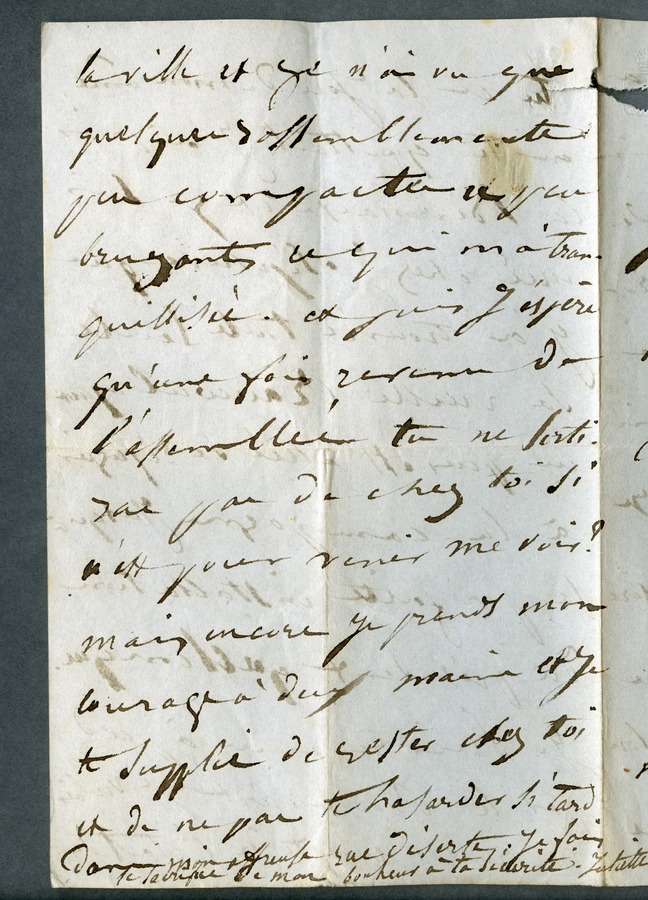 la ville et je n'ai vu que
quelques rassemblements
peu compactes et peu
bruyants ce qui m'a tran-
quillisée. et puis j'espère
qu'une fois revenu de
l'assemblée tu ne sorti-
ras pas de chez toi si
n'est pour venir me voir?
mais encore je prends mon
courage à deux mains et je
te supplie de rester chez toi
et de ne pas te hasarder si tard
dans mon affreuse rue déserte. Je fais
le sacrifice de mon bonheur à ta sécurité.